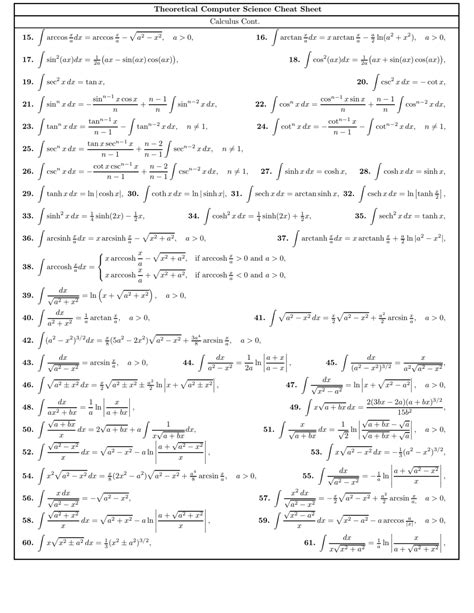 Theoretical Computer Science Cheat Sheet
Calculus Cont.
15. ∫ arccos x/a dx = arccos x/a − √(a² − x²), a > 0, 16. ∫ arctan x/a dx = x arctan x/a − a/2 ln(a² + x²), a > 0,
17. ∫ sin²(ax)dx = 1/2a (ax − sin(ax) cos(ax)), 18. ∫ cos²(ax)dx = 1/2a (ax + sin(ax) cos(ax)),
19. ∫ sec² x dx = tan x, 20. ∫ csc² x dx = − cot x,
21. ∫ sinⁿ x dx = − (sinⁿ⁻¹ x cos x)/n + (n − 1)/n ∫ sinⁿ⁻² x dx, 22. ∫ cosⁿ x dx = (cosⁿ⁻¹ x sin x)/n + (n − 1)/n ∫ cosⁿ⁻² x dx,
23. ∫ tanⁿ x dx = (tanⁿ⁻¹ x)/(n − 1) − ∫ tanⁿ⁻² x dx, n ≠ 1, 24. ∫ cotⁿ x dx = − (cotⁿ⁻¹ x)/(n − 1) − ∫ cotⁿ⁻² x dx, n ≠ 1,
25. ∫ secⁿ x dx = (tan x secⁿ⁻¹ x)/(n − 1) + (n − 2)/(n − 1) ∫ secⁿ⁻² x dx, n ≠ 1,
26. ∫ cscⁿ x dx = − (cot x cscⁿ⁻¹ x)/(n − 1) + (n − 2)/(n − 1) ∫ cscⁿ⁻² x dx, n ≠ 1, 27. ∫ sinh x dx = cosh x, 28. ∫ cosh x dx = sinh x,
29. ∫ tanh x dx = ln | cosh x|, 30. ∫ coth x dx = ln | sinh x|, 31. ∫ sech x dx = arctan sinh x, 32. ∫ csch x dx = ln |tanh x/2|,
33. ∫ sinh² x dx = 1/4 sinh(2x) − 1/2 x, 34. ∫ cosh² x dx = 1/4 sinh(2x) + 1/2 x, 35. ∫ sech² x dx = tanh x,
36. ∫ arcsinh x/a dx = x arcsinh x/a − √(x² + a²), a > 0, 37. ∫ arctanh x/a dx = x arctanh x/a + a/2 ln |a² − x²|,
38. ∫ arccosh x/a dx = { x arccosh x/a − √(x² + a²), if arccosh x/a > 0 and a > 0,
x arccosh x/a + √(x² + a²), if arccosh x/a < 0 and a > 0,
39. ∫ dx/√(a² + x²) = ln (x + √(a² + x²)), a > 0,
40. ∫ dx/(a² + x²) = 1/a arctan x/a, a > 0, 41. ∫ √(a² − x²) dx = x/2 √(a² − x²) + a²/2 arcsin x/a, a > 0,
42. ∫ (a² − x²)^3/2 dx = x/8 (5a² − 2x²)√(a² − x²) + 3a⁴/8 arcsin x/a, a > 0,
43. ∫ dx/√(a² − x²) = arcsin x/a, a > 0, 44. ∫ dx/(a² − x²) = 1/2a ln |(a + x)/(a − x)|, 45. ∫ dx/(a² − x²)^3/2 = x/(a²√(a² − x²)),
46. ∫ √(a² ± x²) dx = x/2 √(a² ± x²) ± a²/2 ln |x + √(a² ± x²)|, 47. ∫ dx/√(x² − a²) = ln |x + √(x² − a²)|, a > 0,
48. ∫ dx/(ax² + bx) = 1/a ln |x/(a + bx)|, 49. ∫ x√(a + bx) dx = 2(3bx − 2a)(a + bx)^3/2/15b²,
50. ∫ √(a + bx)/x dx = 2√(a + bx) + a ∫ 1/(x√(a + bx)) dx, 51. ∫ x/√(a + bx) dx = 1/√2 ln |(√(a + bx) − √a)/(√(a + bx) + √a)|, a > 0,
52. ∫ √(a² − x²)/x dx = √(a² − x²) − a ln |(a + √(a² − x²))/x|, 53. ∫ x√(a² − x²) dx = −1/3 (a² − x²)^3/2,
54. ∫ x²√(a² − x²) dx = x/8 (2x² − a²)√(a² − x²) + a⁴/8 arcsin x/a, a > 0, 55. ∫ dx/√(a² − x²) = −1/a ln |(a + √(a² − x²))/x|,
56. ∫ x dx/√(a² − x²) = −√(a² − x²), 57. ∫ x² dx/√(a² − x²) = −x/2 √(a² − x²) + a²/2 arcsin x/a, a > 0,
58. ∫ √(a² + x²)/x dx = √(a² + x²) − a ln |(a + √(a² + x²))/x|, 59. ∫ √(x² − a²)/x dx = √(x² − a²) − a arccos a/|x|, a > 0,
60. ∫ x√(x² ± a²) dx = 1/3 (x² ± a²)^3/2, 61. ∫ dx/(x√(x² + a²)) = 1/a ln |x/(a + √(a² + x²))|,